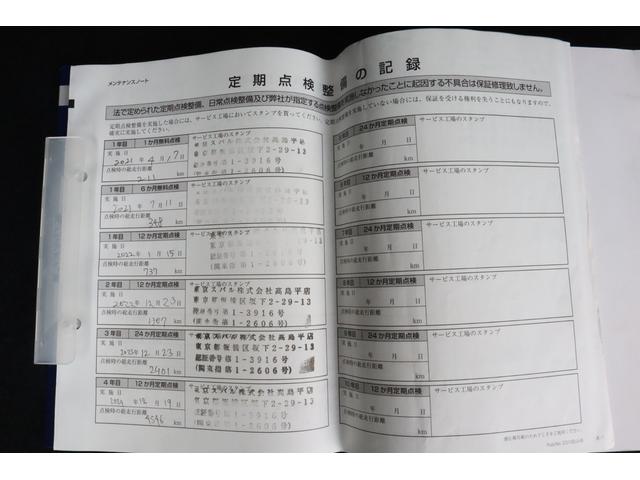 メンテナンスノート
定期点検整備の記録
法で定められた定期点検整備、日常点検整備及び弊社が指定する点検整備を実施しなかったことに起因する不具合は保証修理致しません。
定期点検整備を実施した場合には、サービス工場においてスタンプを買ってください。
確実に実施してください。
を実施していない場合には、保証を受ける権利を失うことにもなりますので、
1年目 1か月無料点検
サービス工場のスタンプ
実施日
2021年4月7日
点検時の総走行距離
211 km
東京スバル株式会社高島平店
東京都板橋区坂下2-29-13
1-3916号
1-2606号)
1年目 6か月無料点検
サービス工場のスタンプ
実施日
2021年7月11日
点検時の総走行距離
348 km
2-29-13
1-3916号
1-2606号)
1年目 12か月定期点検
サービス工場のスタンプ
実施日
2022年1月15日
点検時の総走行距離
737 km
2-29-13
認証番号第1-3916号
(関東指第1-2606号)
2年目 12か月定期点検
サービス工場のスタンプ
実施日
2022年12月23日
点検時の総走行距離
1307 km
東京スバル株式会社高島平店
東京都板橋区坂下2-29-13
1-3916号
1-2606号)
3年目 24か月定期点検
サービス工場のスタンプ
実施日
2023年12月23日
点検時の総走行距離
2401 km
東京スバル株式会社高島平店
東京都板橋区坂下2-29-13
認証番号第1-3916号
(関東指第1-2606号)
4年目 12か月定期点検
サービス工場のスタンプ
実施日
2024年12月19日
点検時の総走行距離
4546 km
東京スバル株式会社高島平店
東京都板橋区坂下2-29-13
認証番号第1-3916号
(関東指第1-2606号)
24か月定期点検
サービス工場のスタンプ
年 月 日
点検時の総走行距離
km
6年目 12か月定期点検
サービス工場のスタンプ
実施日
年 月 日
点検時の総走行距離
km
7年目 24か月定期点検
サービス工場のスタンプ
実施日
年 月 日
点検時の総走行距離
km
8年目 12か月定期点検
サービス工場のスタンプ
実施日
年 月 日
点検時の総走行距離
km
9年目 24か月定期点検
サービス工場のスタンプ
実施日
年 月 日
点検時の総走行距離
km
10年目 12か月定期点検
サービス工場のスタンプ
実施日
年 月 日
点検時の総走行距離
km